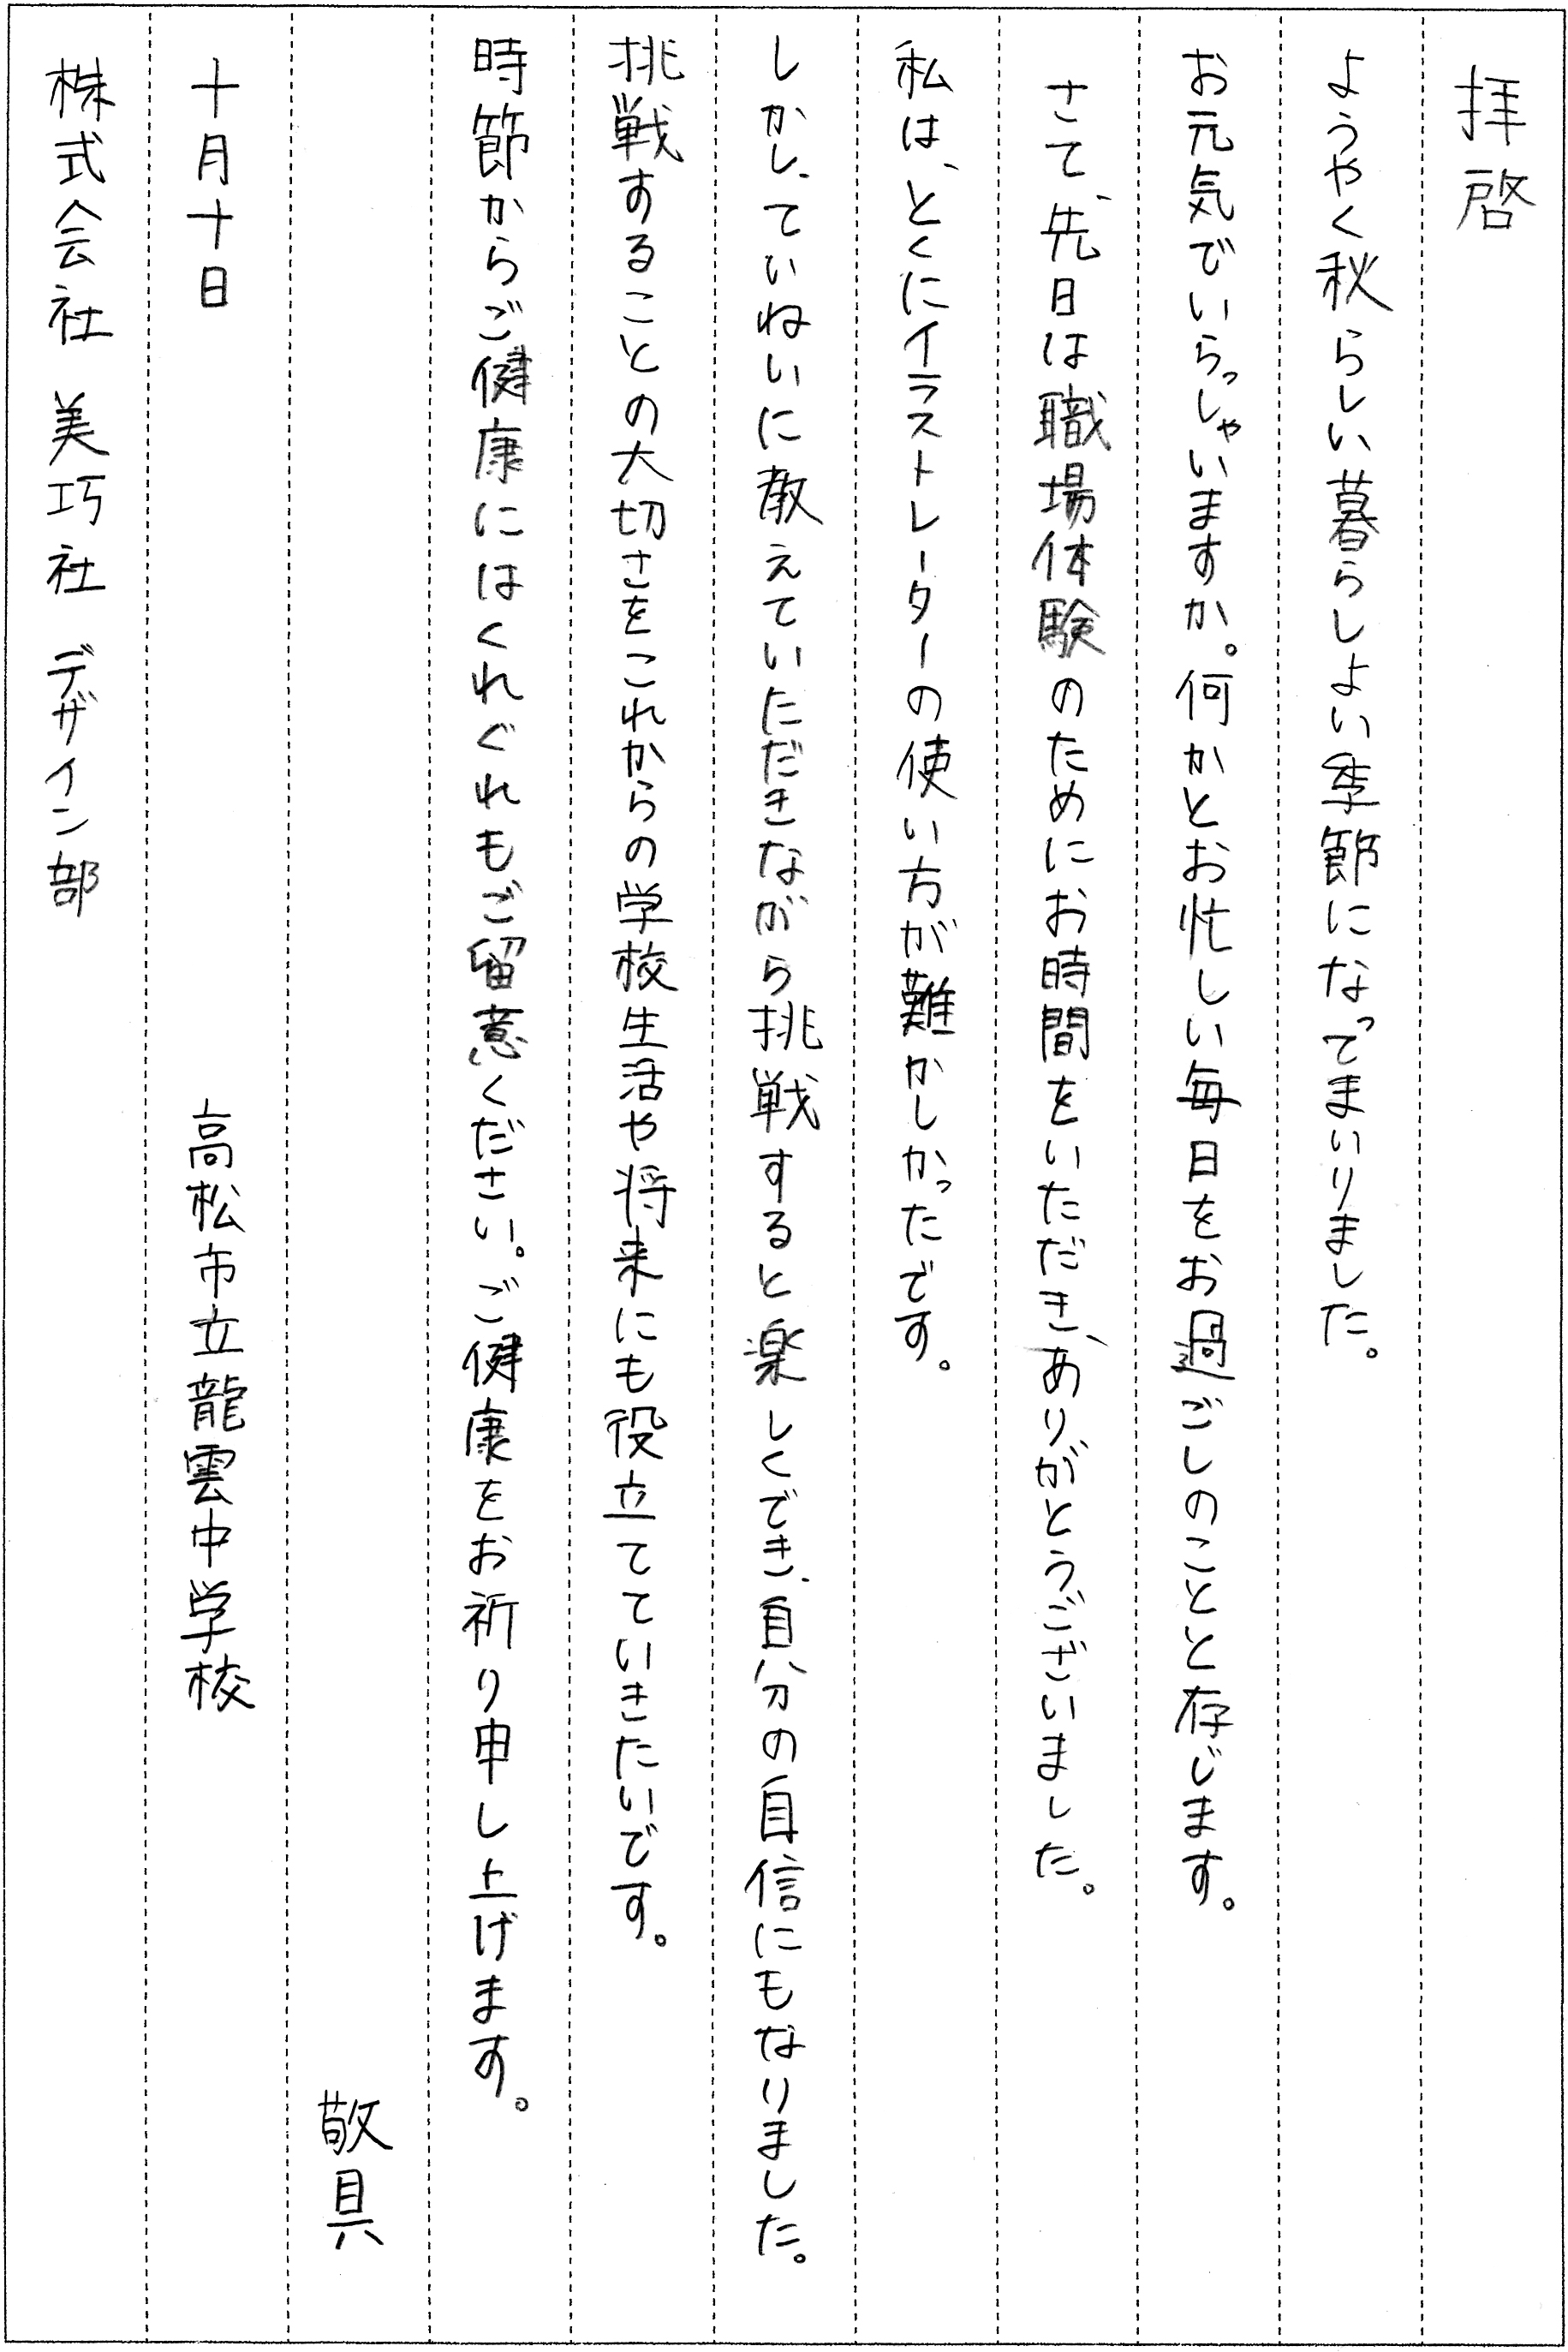 拝啓
ようやく秋らしい暮らしよい季節になってまいりました。
お元気でいらっしゃいますか。何かとお忙しい毎日をお過ごしのことと存じます。
さて、先日は職場体験のためにお時間をいただき、ありがとうございました。
私は、とくにイラストレーターの使い方が難かしかったです。
しかし、ていねいに教えていただきながら挑戦すると楽しくでき、自分の自信にもなりました。
挑戦することの大切さをこれからの学校生活や将来にも役立てていきたいです。
時節からご健康にはくれぐれもご留意ください。ご健康をお祈り申し上げます。
敬具
十月十日
高松市立龍雲中学校
株式会社 美巧社 デザイン部